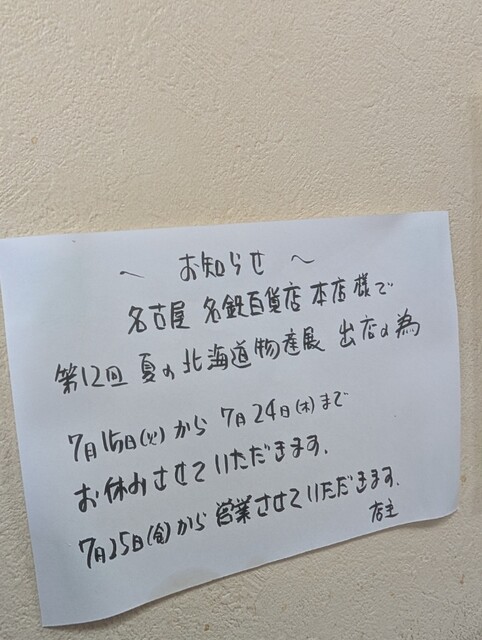 〜 お知らせ 〜
名古屋 名鉄百貨店 本店様で
第12回 夏の北海道物産展 出店の為
7月15日(火)から 7月24日(木)まで
お休みさせていただきます.
7月25日(金)から営業させていただきます.
店主